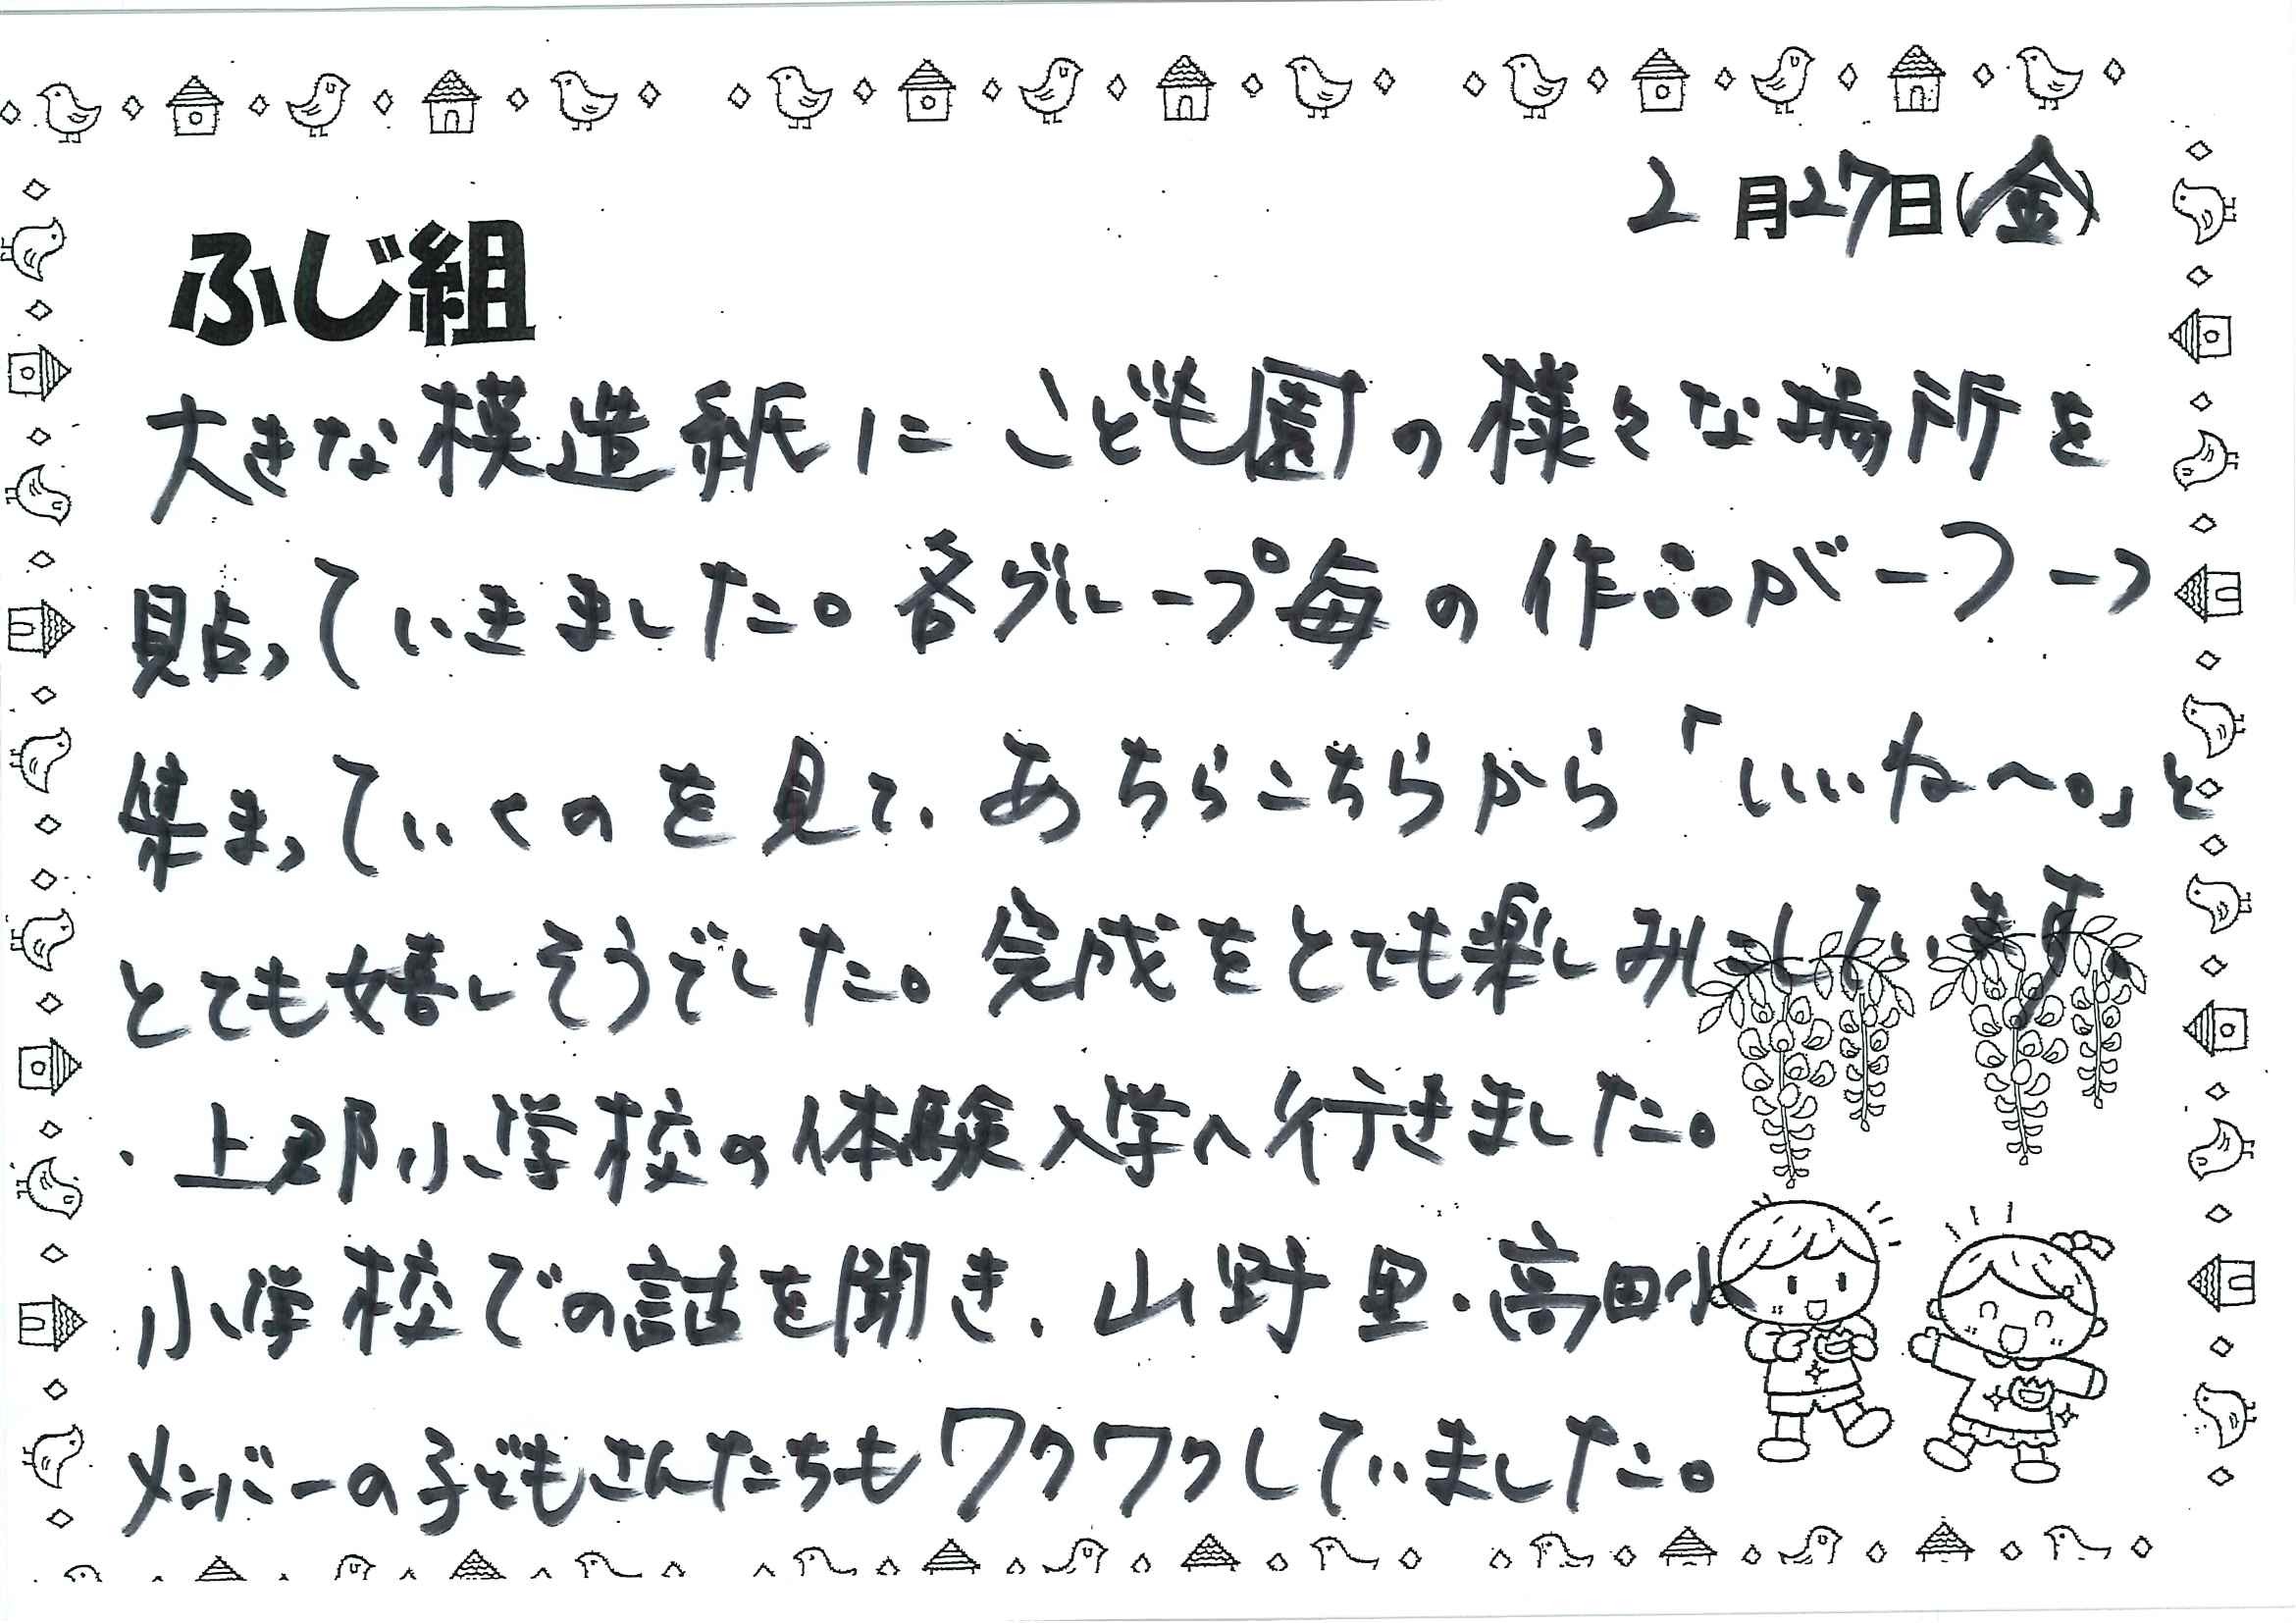 2月27日(金)
ふじ組
大きな模造紙に こども園の様々な場所を
貼っていきました。各グループ毎の作品が一つ一つ
集まっていくのを見て、あちらこちらから「いいね〜。」と
とても嬉しそうでした。完成をとても楽しみにしています
・上郡小学校の体験入学へ行きました。
小学校での話を聞き、山野里・高田小
メンバーの子どもさんたちもワクワクしていました。